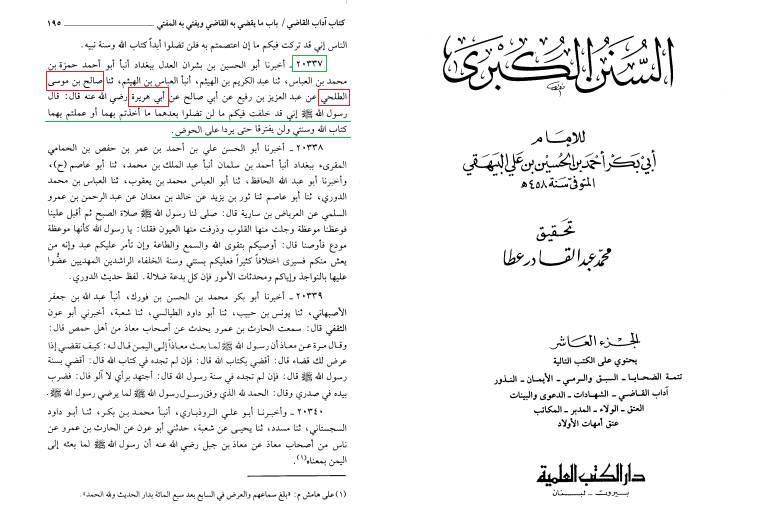 كتاب آداب القاضي / باب ما يقضي به القاضي ويفتي به المفتي ١٩٥
الناس إني قد تركت فيكم ما إن اعتصمتم به فلن تضلوا أبداً كتاب الله وسنة نبيه.
٢٠٣٣٧ ـ أخبرنا أبو الحسين بن بشران العدل ببغداد أنبأ أبو أحمد حمزة بن
محمد بن العباس، ثنا عبد الكريم بن الهيثم، أنبأ العباس بن الهيثم، ثنا صالح بن موسى
الطلحي عن عبد العزيز بن رفيع عن أبي صالح عن أبي هريرة رضي الله عنه قال: قال
رسول الله ﷺ إني قد خلفت فيكم ما لن تضلوا بعدهما ما أخذتم بهما أو عملتم بهما
كتاب الله وسنتي ولن يفترقا حتى يردا على الحوض.
٢٠٣٣٨ ـ أخبرنا أبو الحسن علي بن أحمد بن عمر بن حفص بن الحمامي
المقرىء ببغداد أنبأ أحمد بن سلمان أنبأ عبد الملك بن محمد، ثنا أبو عاصم (ح)،
وأخبرنا أبو عبد الله الحافظ، ثنا أبو العباس محمد بن يعقوب، ثنا العباس بن محمد
الدوري، ثنا أبو عاصم ثنا ثور بن يزيد عن خالد بن معدان عن عبد الرحمن بن عمرو
السلمي عن العرباض بن سارية قال: صلى لنا رسول الله ﷺ صلاة الصبح ثم أقبل علينا
فوعظنا موعظة وجلت منها القلوب وذرفت منها العيون فقلنا: يا رسول الله كأنها موعظة
مودع فأوصنا قال: أوصيكم بتقوى الله والسمع والطاعة وإن تأمر عليكم عبد وإنه من
يعش منكم فسيرى اختلافاً كثيراً فعليكم بسنتي وسنة الخلفاء الراشدين المهديين عضُّوا
عليها بالنواجذ وإياكم ومحدثات الأمور فإن كل بدعة ضلالة. لفظ حديث الدوري.
٢٠٣٣٩ ـ أخبرنا أبو بكر محمد بن الحسن بن فورك، أنبأ عبد الله بن جعفر
الأصبهاني، ثنا يونس بن حبيب، ثنا أبو داود الطيالسي، ثنا شعبة، أخبرني أبو عون
الثقفي قال: سمعت الحارث بن عمرو يحدث عن أصحاب معاذ من أهل حمص قال:
وقال مرة عن معاذ أن رسول الله ﷺ لما بعث معاذاً إلى اليمن قال له: كيف تقضي إذا
عرض لك قضاء قال: أقضي بكتاب الله قال: فإن لم تجده في كتاب الله قال: أقضي بسنة
رسول الله ﷺ قال: فإن لم تجده في سنة رسول الله قال: أجتهد برأي لا آلو قال: فضرب
بيده في صدري وقال: الحمد لله الذي وفق رسول رسول الله ﷺ لما يرضي رسول الله.
٢٠٣٤٠ ـ وأخبرنا أبو علي الروذباري، أنبأ محمد بن بكر، ثنا أبو داود
السجستاني، ثنا مسدد، ثنا يحيى عن شعبة، حدثني أبو عون عن الحارث بن عمرو عن
ناس من أصحاب معاذ عن معاذ بن جبل رضي الله عنه أن رسول الله ﷺ لما بعثه إلى
اليمن بمعناه(١).
(١) على هامش م: «بلغ سماعهم والعرض في السابع بعد سبع المائة بدار الحديث ولله الحمد».
السنن الكبرى
للإمام
أبي بكر أحمد بن الحسين بن علي البيهقي
المتوفى سنة ٤٥٨ هـ
تحقيق
محمد عبد القادر عطا
الجزء العاشر
يحتوي على الكتب التالية
تتمة الضحايا ـ السبق والرمي ـ الأيمان ـ النذور
آداب القاضي ـ الشهادات ـ الدعوى والبينات
العتق ـ الولاء ـ المدبر ـ المكاتب
عتق أمهات الأولاد
دار الكتب العلمية
بيروت ـ لبنان